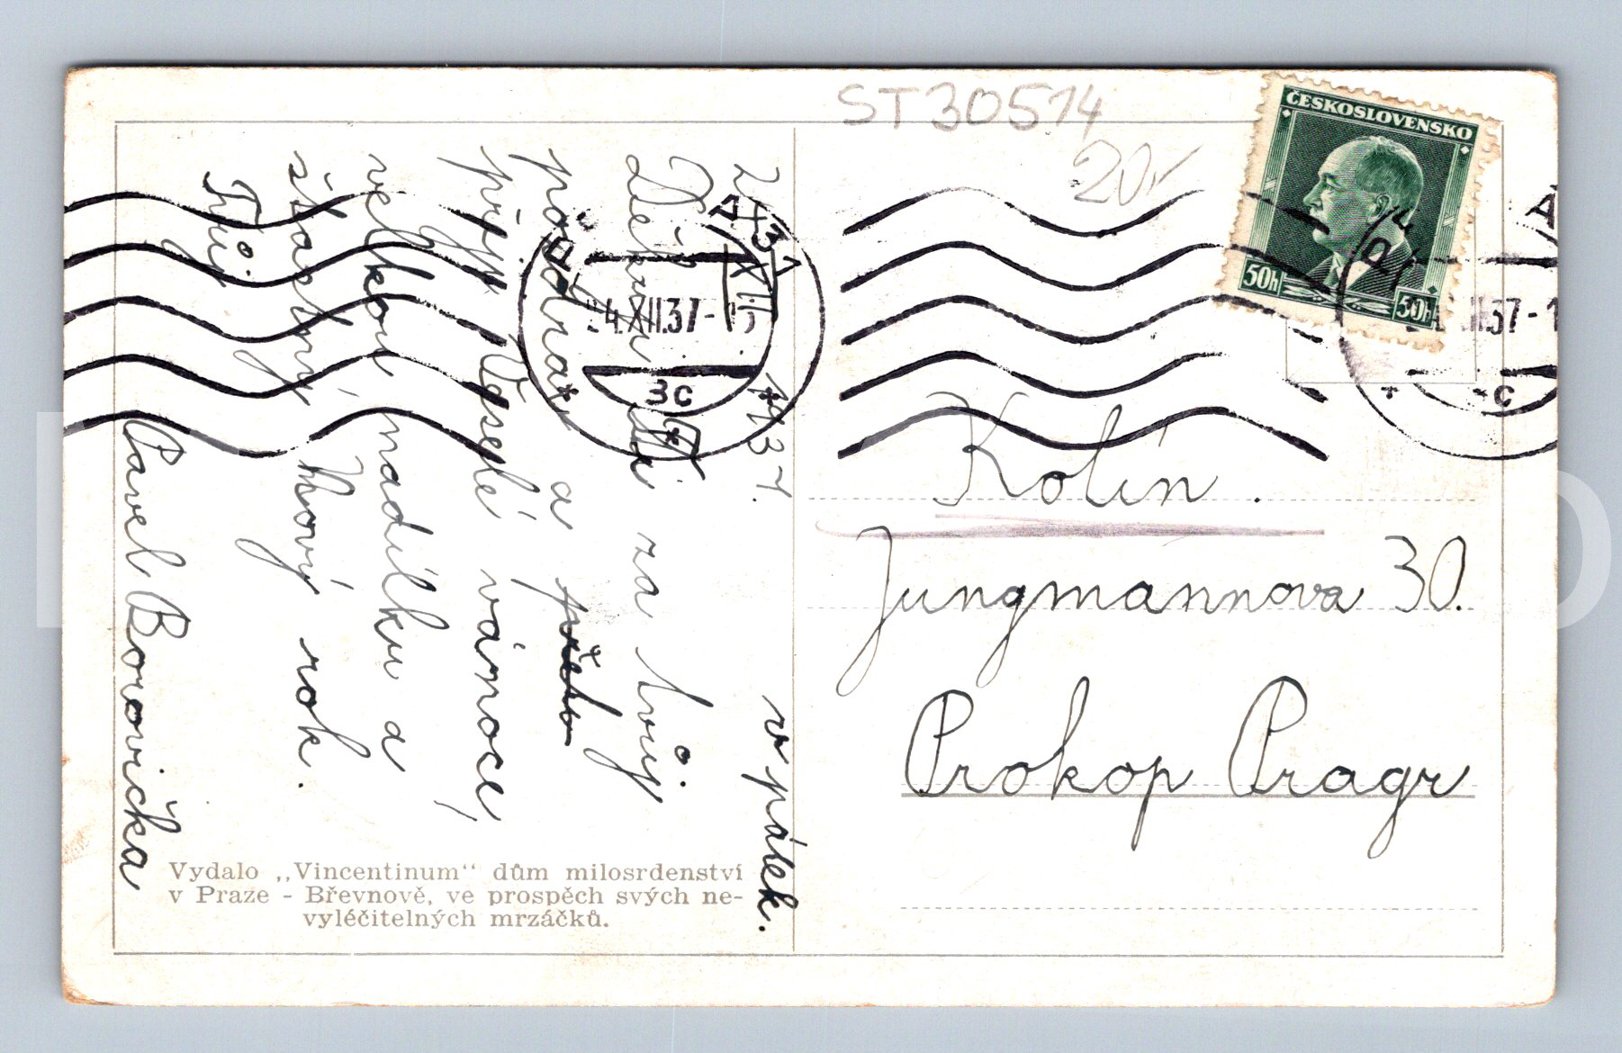 ST30514
20,-
ČESKOSLOVENSKO
50h 50h
PRAHA 31
24.XII.37-15
3c
XII. 1937.
v pátek.
Děkuji ti za tvůj
pozdrav a
přeji Veselé vánoce,
velkou nadílku a
šťastný Nový rok.
Tvůj
Pavel Borovička
Kolín.
Jungmannova 30.
Prokop Pragr
Vydalo „Vincentinum“ dům milosrdenství
v Praze - Břevnově, ve prospěch svých ne-
vyléčitelných mrzáčků.